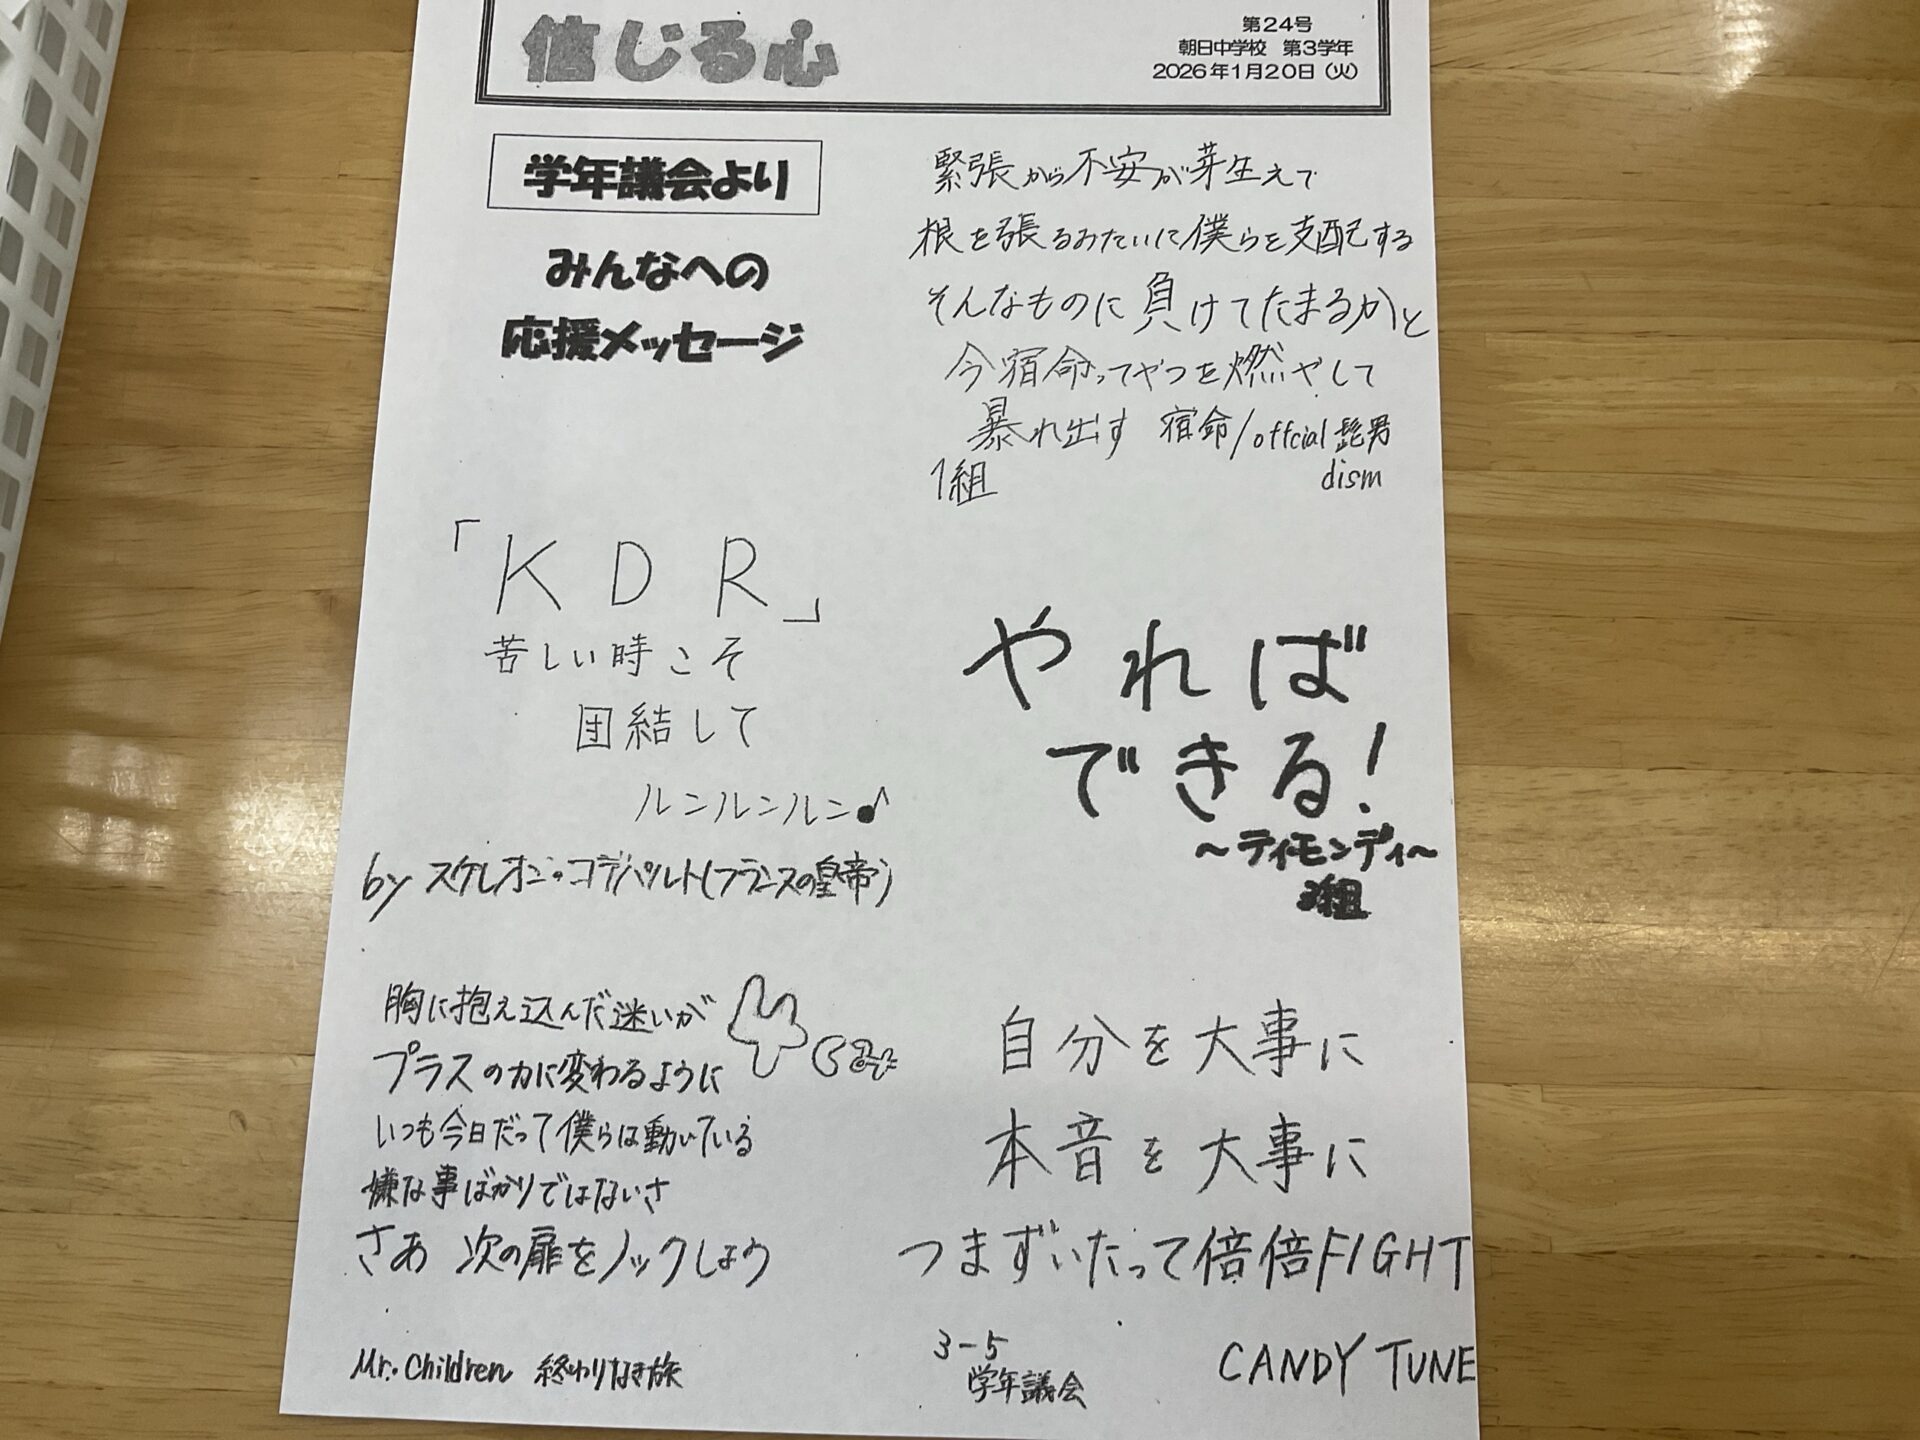 信じる心
第24号
朝日中学校 第3学年
2026年1月20日(火)
学年議会より
みんなへの
応援メッセージ
緊張から不安が芽生えて
根を張るみたいに僕らを支配する
そんなものに負けてたまるかと
今宿命ってやつを燃やして
暴れ出す 宿命/offcial髭男
dism
1組
「KDR」
苦しい時こそ
団結して
ルンルンルン♪
by スケレオン・コデパルト(フランスの皇帝)
やれば
できる!
~ティモンディ~
3組
胸に抱え込んだ迷いが
プラスの力に変わるように
いつも今日だって僕らは動いている
嫌な事ばかりではないさ
さあ 次の扉をノックしよう
Mr.Children 終わりなき旅
自分を大事に
本音を大事に
つまずいたって倍倍FIGHT
3-5
学年議会
CANDY TUNE